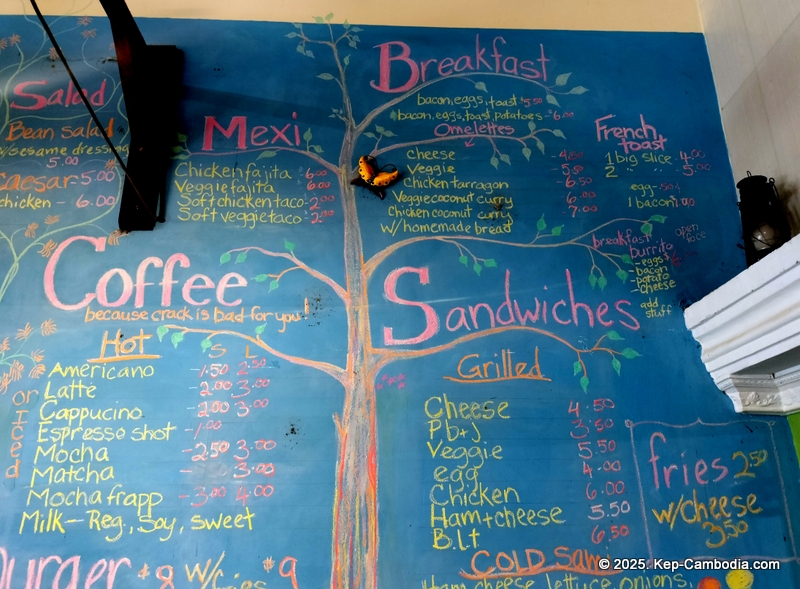 Salad
Bean salad
w/sesame dressing
5.00
Caesar-5.00
chicken - 6.00
Mexi
Chicken fajita 6.00
Veggie fajita 6.00
Soft chicken taco-2.00
Soft veggie taco-2.00
Breakfast
bacon, eggs, toast 5.50
bacon, eggs, toast, potatoes - 6.00
Omelettes
cheese -4.50
Veggie -5.50
Chicken tarragon -6.50
Veggie coconut curry 6.00
Chicken coconut curry 7.00
w/homemade bread
French toast
1 big slice - 4.00
2 " - 5.00
egg-.50¢
1 bacon 1.00
breakfast burrita
open face
-eggs
-bacon
-potato
-cheese
add stuff
Coffee
because crack is bad for you!
Hot
S L
or Iced
Americano -1.50 2.50
Latte -2.00 3.00
Cappucino -2.00 3.00
Espresso shot -1.00
Mocha -2.50 3.50
Matcha - 3.00
Mocha frapp -3.00 4.00
Milk-Reg, Soy, sweet
Burger $8 w/fries $9
Sandwiches
Grilled
Cheese 4.50
Pb+j 3.50
Veggie 5.50
egg 4.00
Chicken 6.00
Ham+cheese 5.50
B.l.t 6.50
fries 2.50
w/cheese
3.50
COLD Sami
Ham, cheese, lettuce, onions,
© 2025. Kep-Cambodia.com